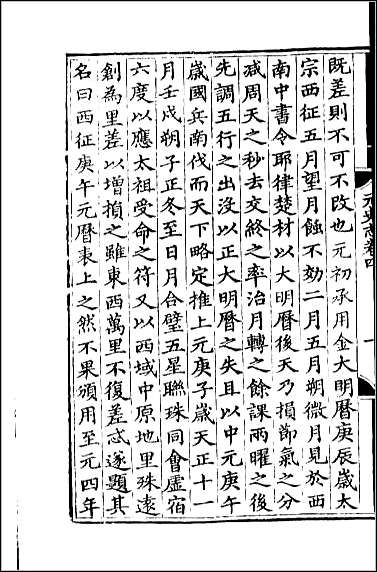 元史志卷四
一
既差則不可不改也元初承用金大明曆庚辰歲太
宗西征五月望月蝕不効二月五月朔微月見於西
南中書令耶律楚材以大明曆後天乃損節氣之分
減周天之秒去交終之率治月轉之餘課兩曜之後
先調五行之出沒以正大明曆之失且以中元庚午
歲國兵南伐而天下略定推上元庚子歲天正十一
月壬戌朔子正冬至日月合璧五星聯珠同會虛宿
六度以應太祖受命之符又以西域中原地里殊遠
創為里差以增損之雖東西萬里不復差忒遂題其
名曰西征庚午元曆表上之然不果頒用至元四年